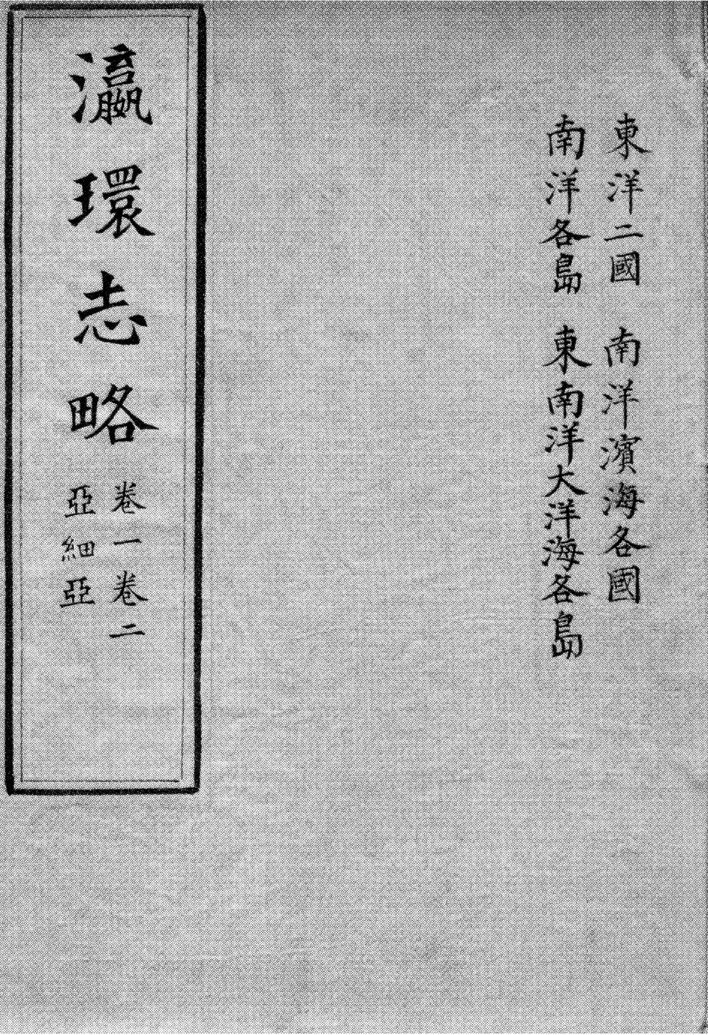 東洋二國 南洋濱海各國
南洋各島 東南洋大洋海各島
瀛環志略
卷一卷二
亞細亞